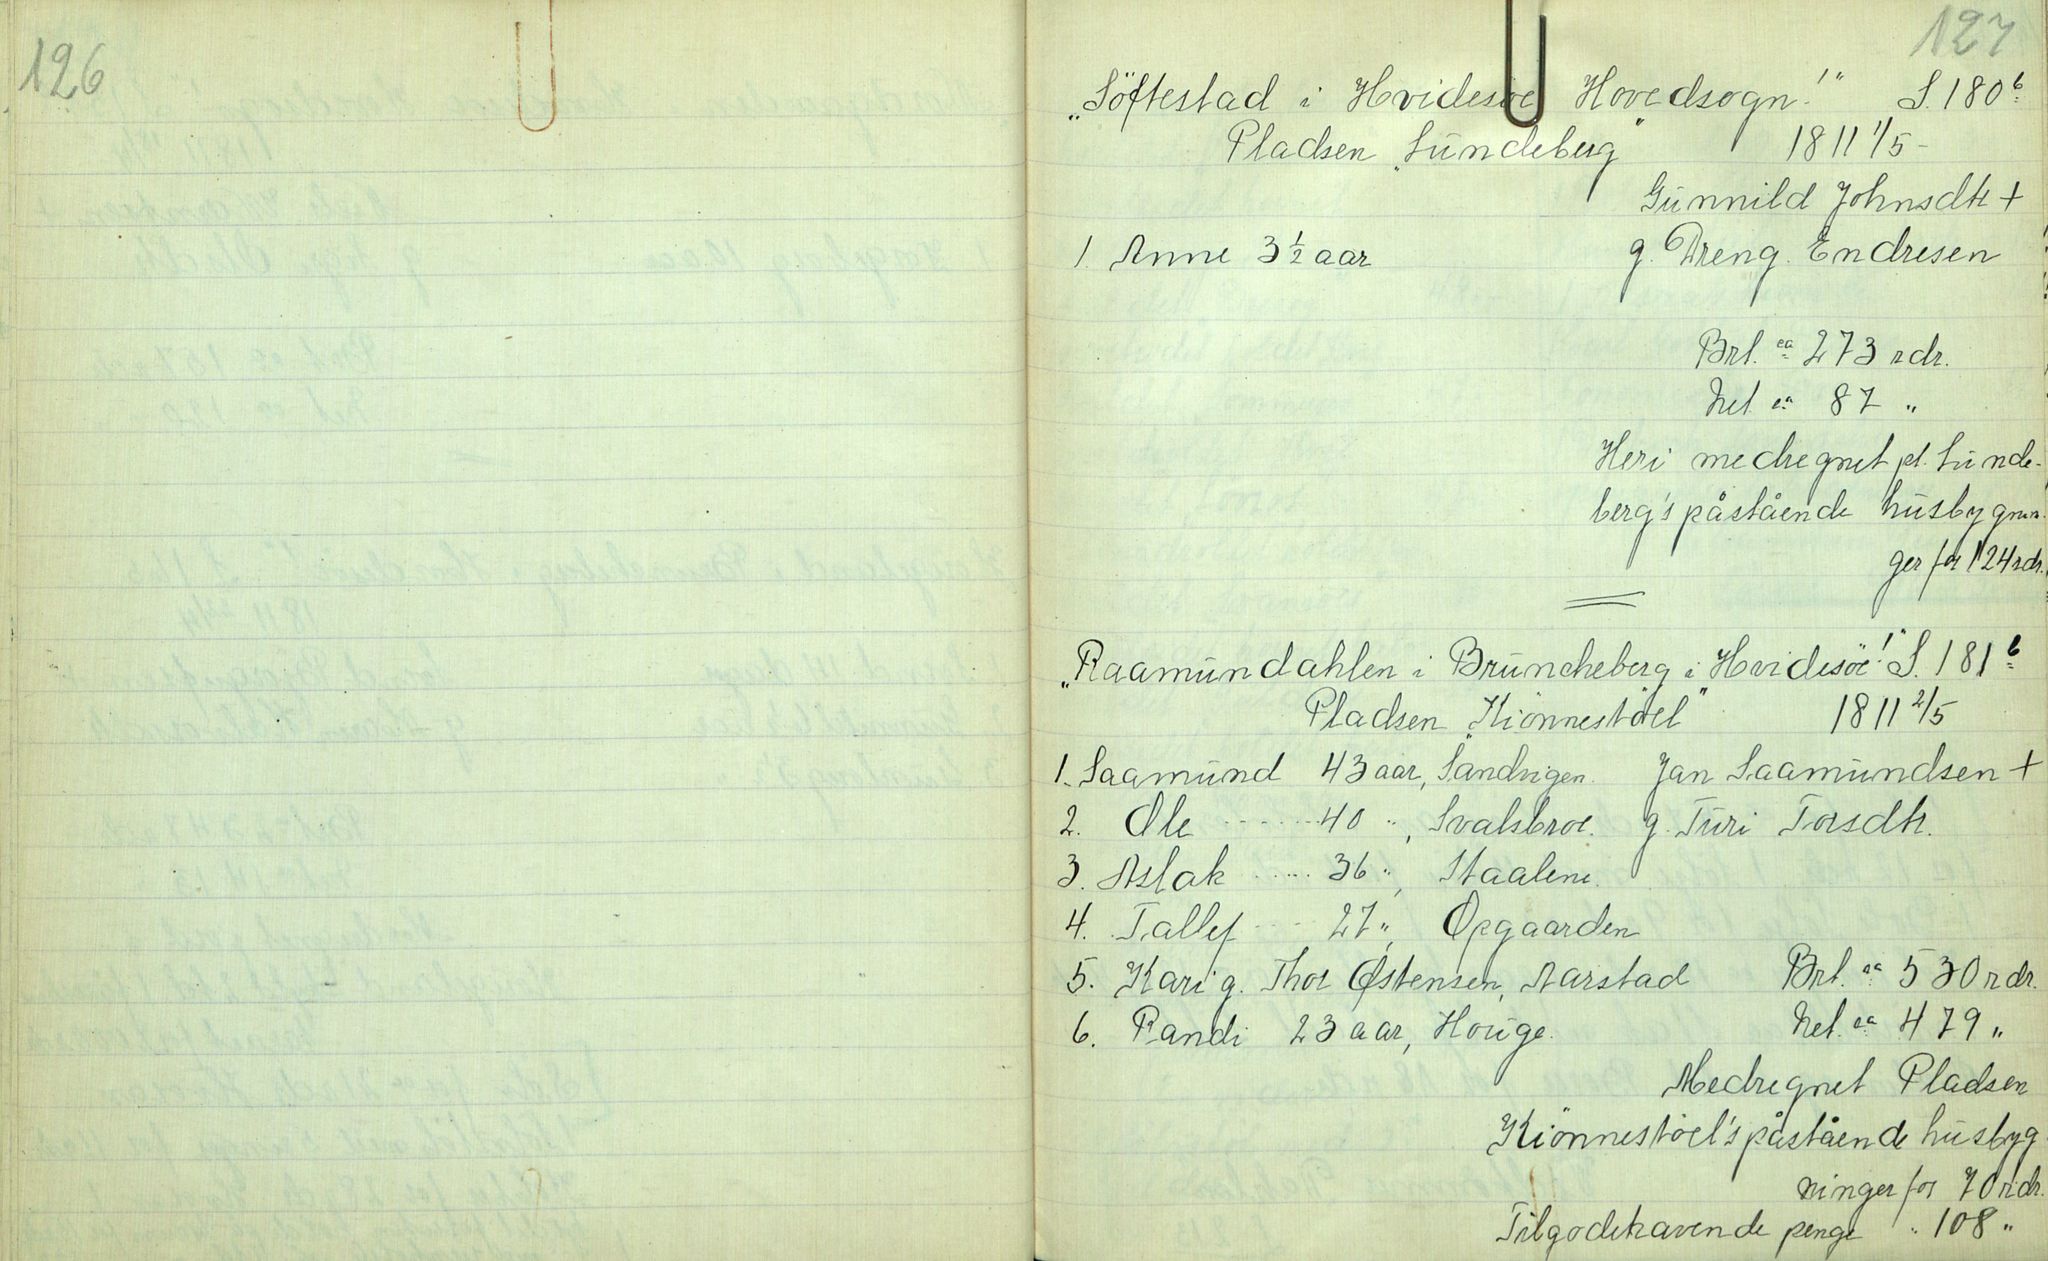 126
127
„Söftestad i Hvidesøe Hovedsogn!" S. 180 b
Pladsen „Lundeberg" 1811 1/5
Gunnild Johnsdtr +
1. Anne 3 1/2 aar g. Dreng Endresen
Brt. ca 273 rdr.
Net. ca 87 "
Heri medregnet pl. Lunde-
berg's påstående husbygnin-
ger for 124 rdr.
„Raamundahlen i Bruncheberg i Hvidesöe!" S. 181 b
Pladsen „Kiönnestöel" 1811 2/5
1. Saamund 43 aar, Sandvigen. Jan Saamundsen +
2. Ole ------ 40 ", Svalsbroe. g. Turi Torsdtr.
3. Aslak ..... 36 ", Staalene.
4. Tallef ---- 27 ", Opgaarden
5. Kari g. Thor Østensen, Aarstad Brt. ca 530 rdr.
6. Randi 23 aar, Houge. Net. ca 479 "
Medregnet Pladsen
Kiönnestöel's påstående husbyg
ninger for 70 rdr.
Tilgodehavende penge " 108 "